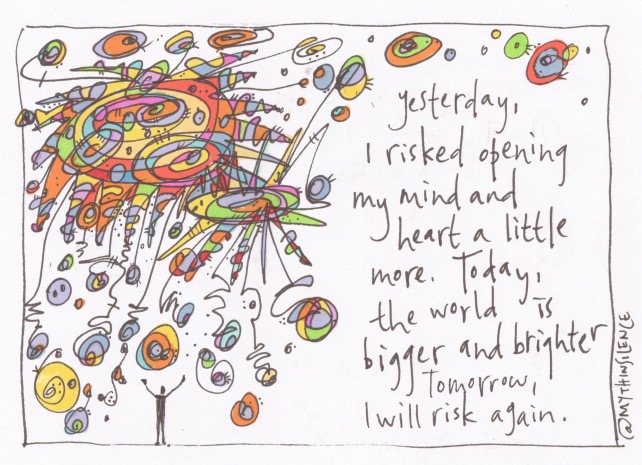 yesterday,
I risked opening
my mind and
heart a little
more. Today,
the world is
bigger and brighter
Tomorrow,
I will risk again.
@MYTHINSILENCE